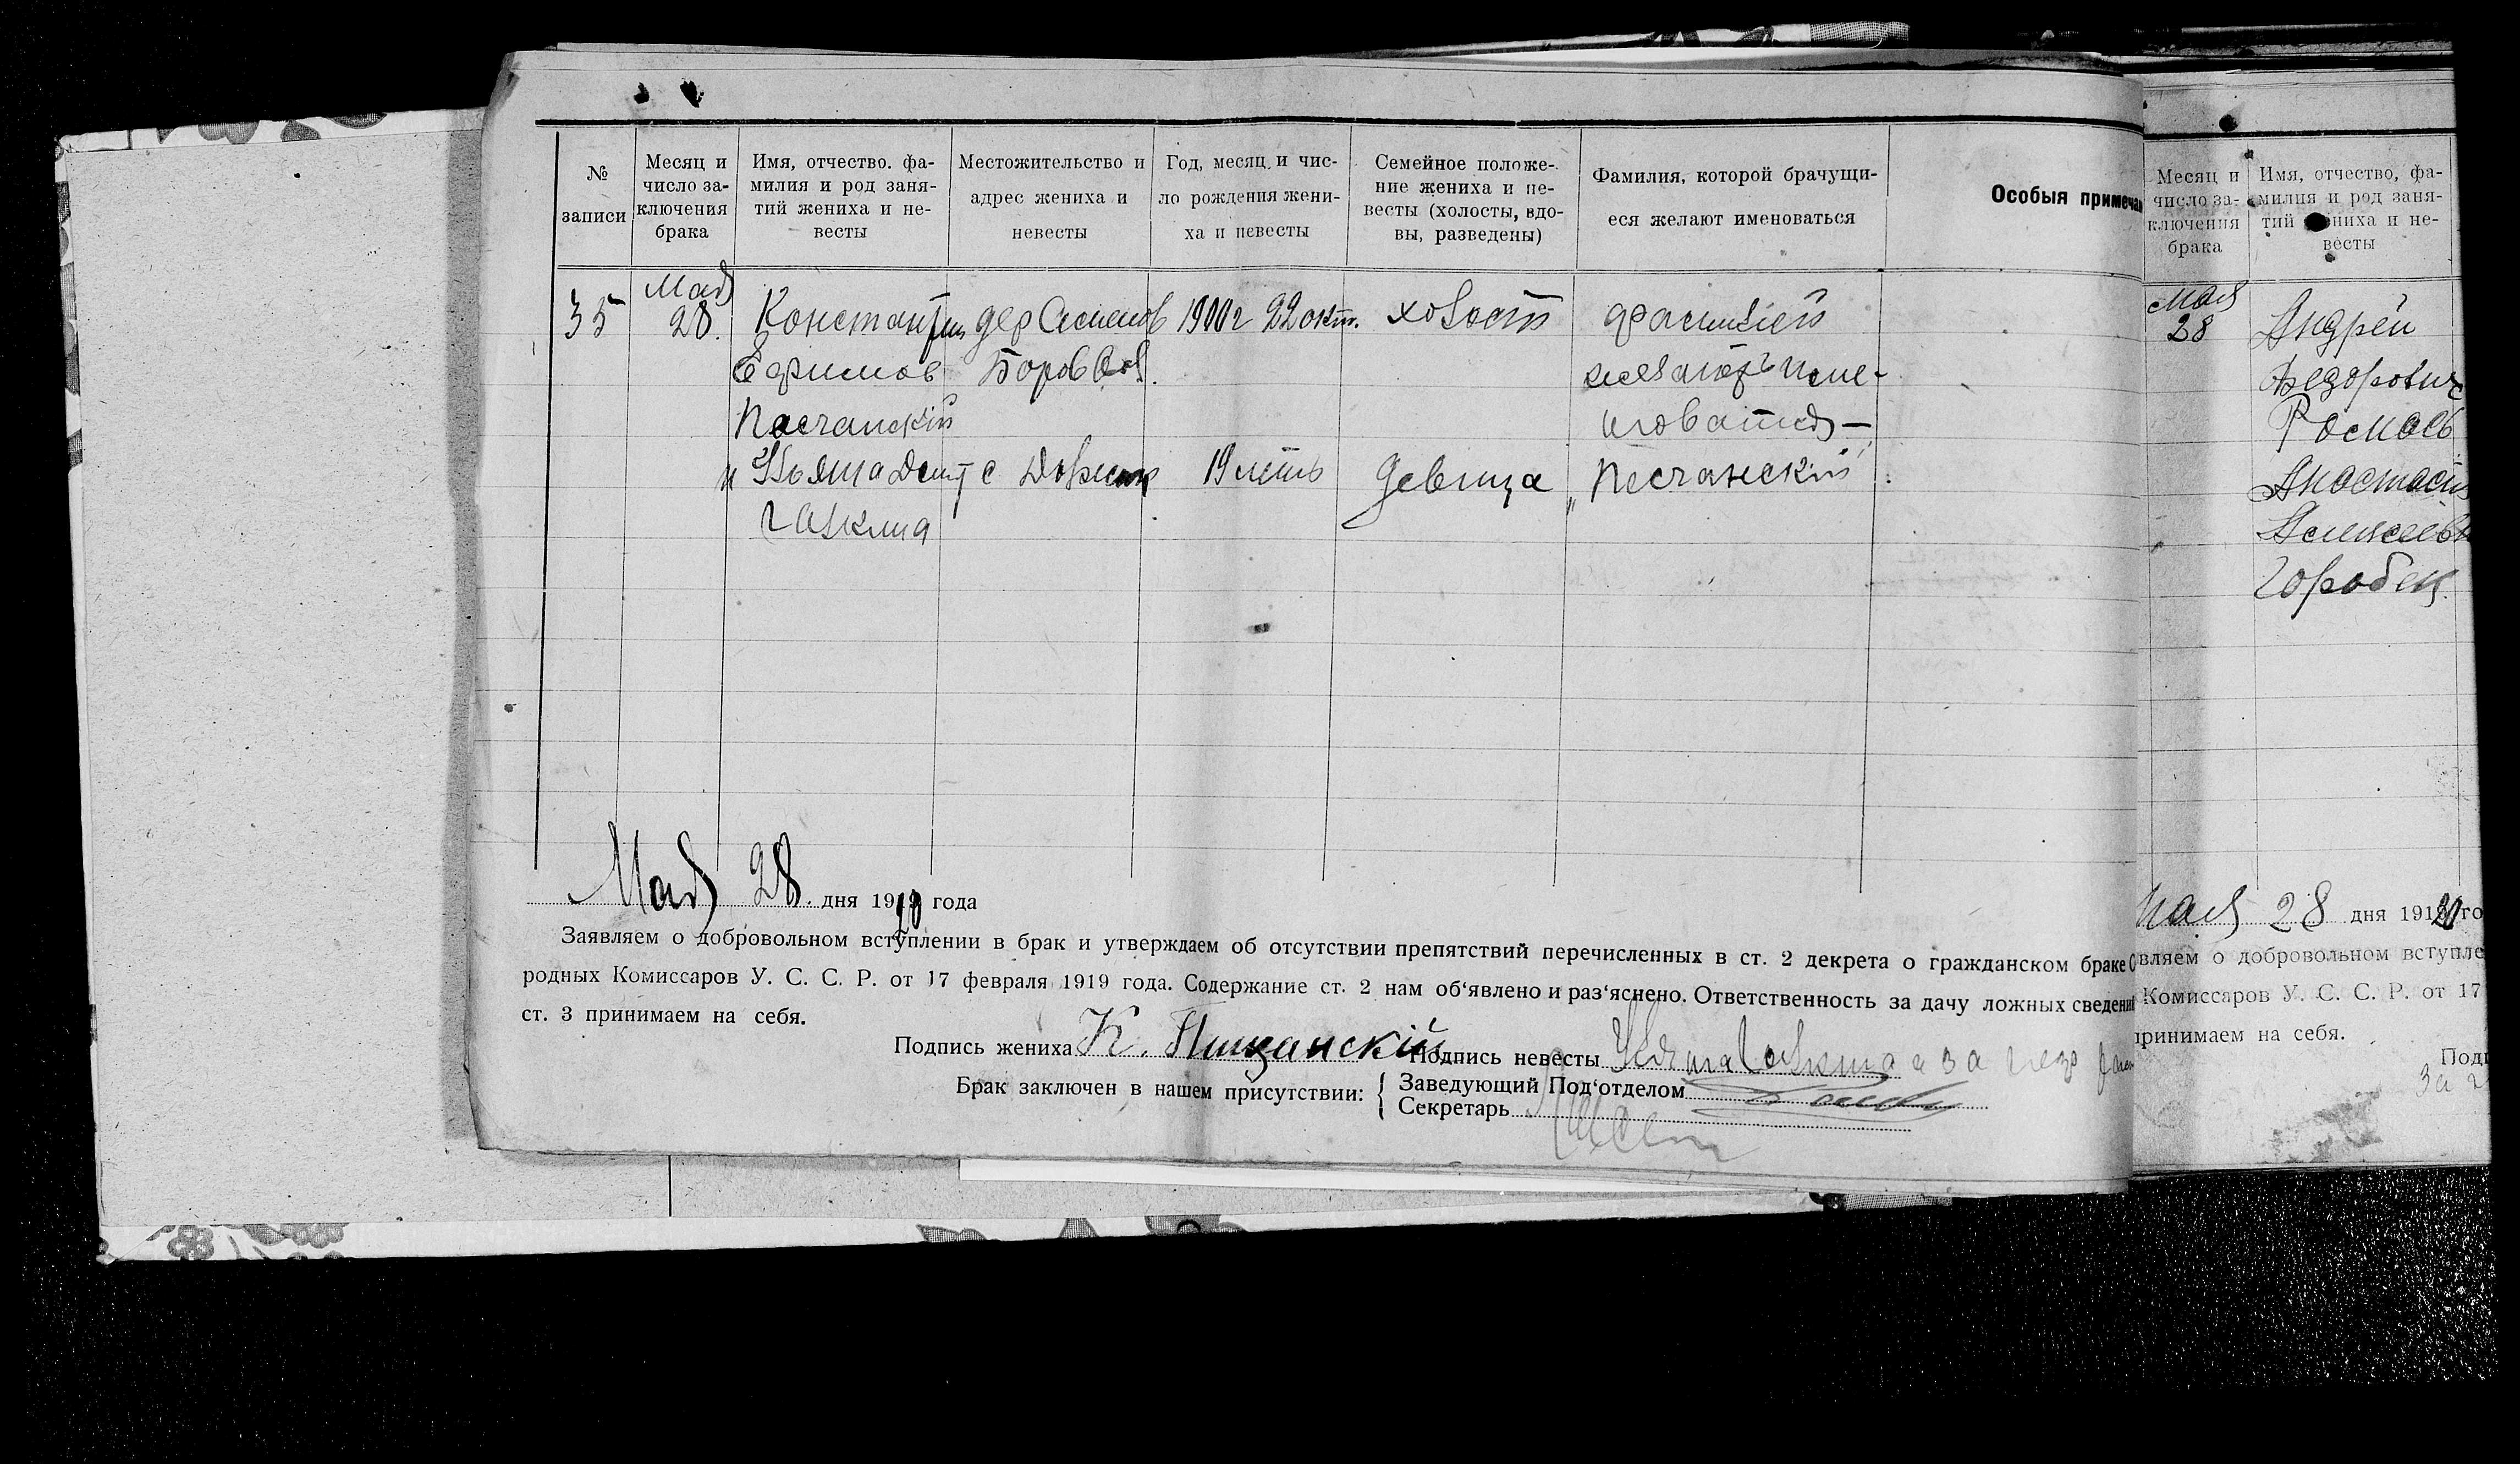 № записи
Месяц и число заключения брака
Имя, отчество. фамилия и род занятий жениха и невесты
Местожительство и адрес жениха и невесты
Год, месяц и число рождения жениха и невесты
Семейное положение жениха и невесты (холосты, вдовы, разведены)
Фамилия, которой брачущиеся желают именоваться
Особыя примечан
35
Мая
28.
Константин
Ефимов
Песчанский
и
дер Семенов
1900 г 22 окт.
19 летъ
холост
девица
фамилией
желаютъ име-
новатся —
„Песчанский"
Мая 28. дня 1920 года
Заявляем о добровольном вступлении в брак и утверждаем об отсутствии препятствий перечисленных в ст. 2 декрета о гражданском браке С
родных Комиссаров У. С. С. Р. от 17 февраля 1919 года. Содержание ст. 2 нам об‘явлено и раз‘яснено. Ответственность за дачу ложных сведений
ст. 3 принимаем на себя.
Подпись жениха К. Пищанский
Подпись невесты
Брак заключен в нашем присутствии:
Заведующий Под‘отделом
Секретарь
Месяц и число заключения брака
Имя, отчество, фамилия и род занятий жениха и невесты
Мая
28
Андрей
Федорович
Анастасия
Алексеевн
Горобец.
Мая 28 дня 1920 го
вляем о добровольном вступле
Комиссаров У. С. С. Р. от 17
принимаем на себя.
Подп